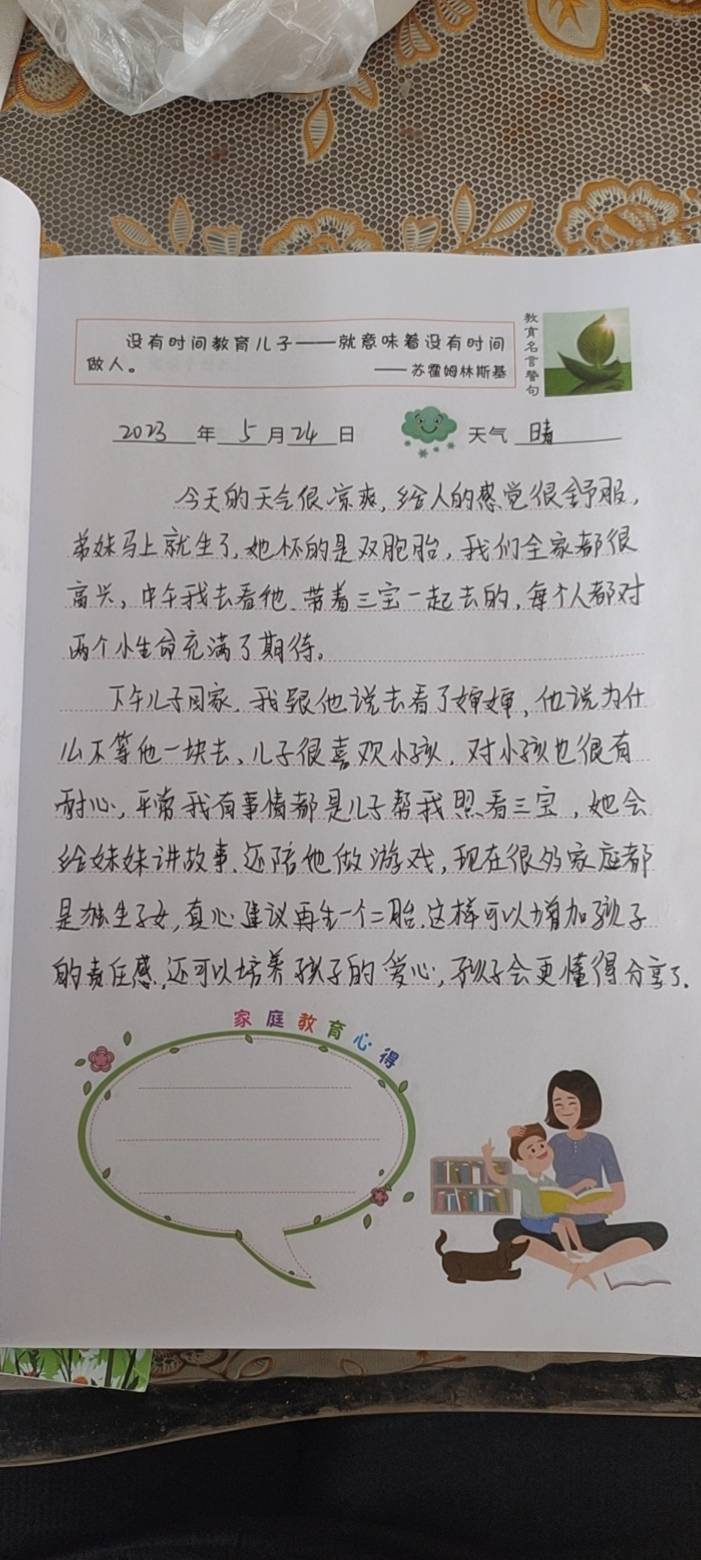 没有时间教育儿子——就意味着没有时间
做人。
——苏霍姆林斯基
教育名言警句
2023年5月24日 天气 晴
今天的天气很凉爽,给人的感觉很舒服,
弟妹马上就生了,她怀的是双胞胎,我们全家都很
高兴,中午我去看他、带着三宝一起去的,每个人都对
两个小生命充满了期待。
下午儿子回家,我跟他说去看了婶婶,他说为什
么不等他一块去、儿子很喜欢小孩,对小孩也很有
耐心,平常我有事情都是儿子帮我照看三宝,她会
给妹妹讲故事、还陪他做游戏,现在很多家庭都
是独生子女,真心建议再生一个二胎,这样可以增加孩子
的责任感,还可以培养孩子的爱心,孩子会更懂得分享了.
家庭教育心得